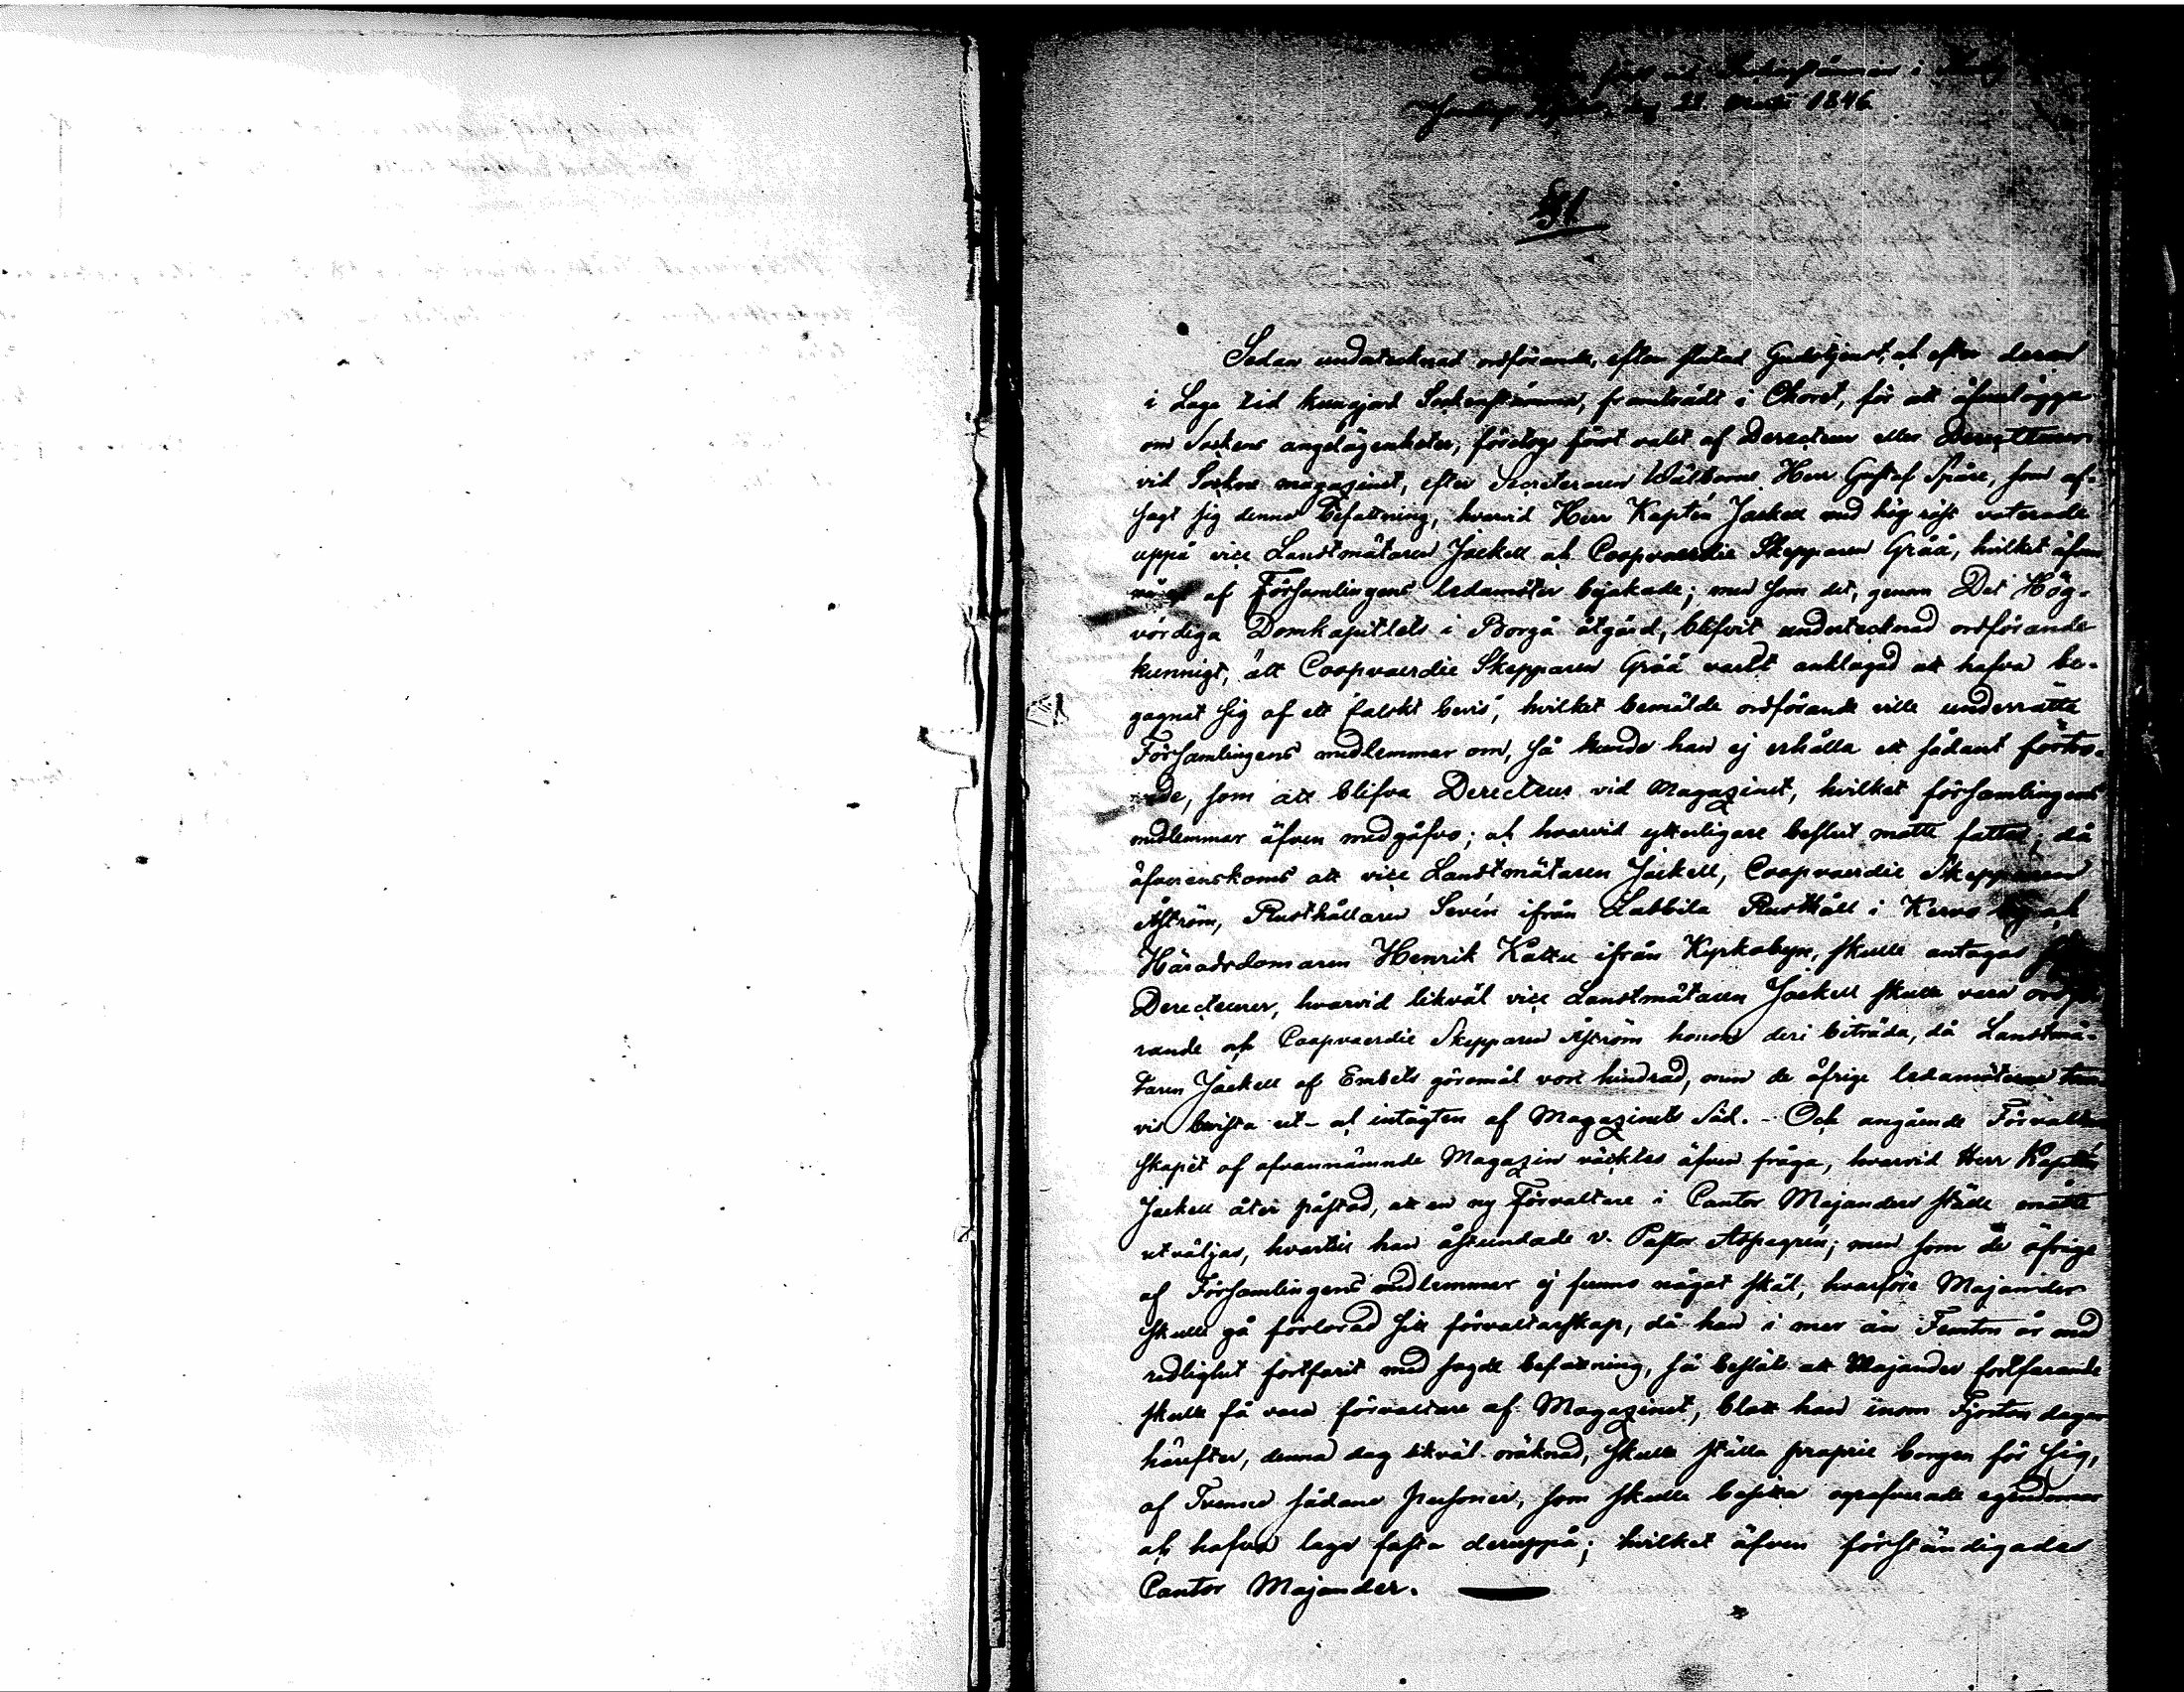 fördt vid Sockenstämman i
den 22 Martii 1846
§1
Sedan undertecknad ordförande, efter slutad Gudstjenst, och efter deraf
i Laga tid kungjord Sockenstämma, framträdt i Choret, för att öfverlägga
om Sockens angelägenheter, företogs först valet af Derecteur eller Derecteurer
vid Sockne magazinet, efter Secreteraren Wälborne Herr Gustaf Spåre, som af-
sagt sig denna befattning, hvarvid Herr Kaptén Jackell med hög röst voterade
uppå vice Landtmätaren Jackell och Coopvaerdie Skepparen Gråå, hvilket äfven
några af Församlingens ledamöter bejakade; men som det, genom Det Hög-
vördiga Domkapitlets i Borgå åtgärd, blifvit undertecknad ordförande
kunnigt, att Coopvaerdie Skepparen Gråå varit anklagad att hafva be-
gagnat sig af ett falskt bevis, hvilket bemälde ordförande ville underrätta
Församlingens medlemmar om, så kunde han ej erhålla ett sådant förtro-
ende, som att blifva Derecteur vid Magazinet, hvilket församlingens
medlemmar äfven medgåfvo; och hvarvid ytterligare beslut måtte fattas; då
öfverenskoms att vice Landtmätaren Jackell, Coopvaerdie Skepparen
Åström, Rusthållaren Sevén ifrån Labbila Rusthåll i Kervo by och
Häradsdomaren Henrik Kattu ifrån Kyrkobyn, skulle antagas
Derecteurer, hvarvid likväl vice Landtmätaren Jackell skulle vara ordfö-
rande och Coopvaerdie Skepparen Åström honom deri biträda, då Landtmä-
taren Jackell af Embets göromål vore hindrad, men de öfrige ledamöterne
vis bevista ut- och intägten af Magazinets Säd. - Och angående Förvaltar
skapet af ofvannämnde Magazin väcktes äfven fråga, hvarvid Herr Kaptén
Jackell åter påstod, att en ny Förvaltare i Cantor Majanders ställe måtte
utväljas, hvartill han åstundade v. Pastor Aspegren; men som de öfrige
af Församlingens medlemmar ej funno något skäl, hvarföre Majander
skulle gå förlorad sitt förvaltarskap, då han i mer än Femton år med
redlighet fortfarit med sagde befattning, så beslöts att Majander fortfarande
skulle få vara förvaltare af Magazinet, blott han inom Fjorton dagar
härefter, denna dag likväl oräknad, skulle ställa proprie borgen för sig,
af Tvenne sådane personer, som skulle besitta ograverade egendomar
och hafva laga fasta deruppå; hvilket äfven förständigades
Cantor Majander.